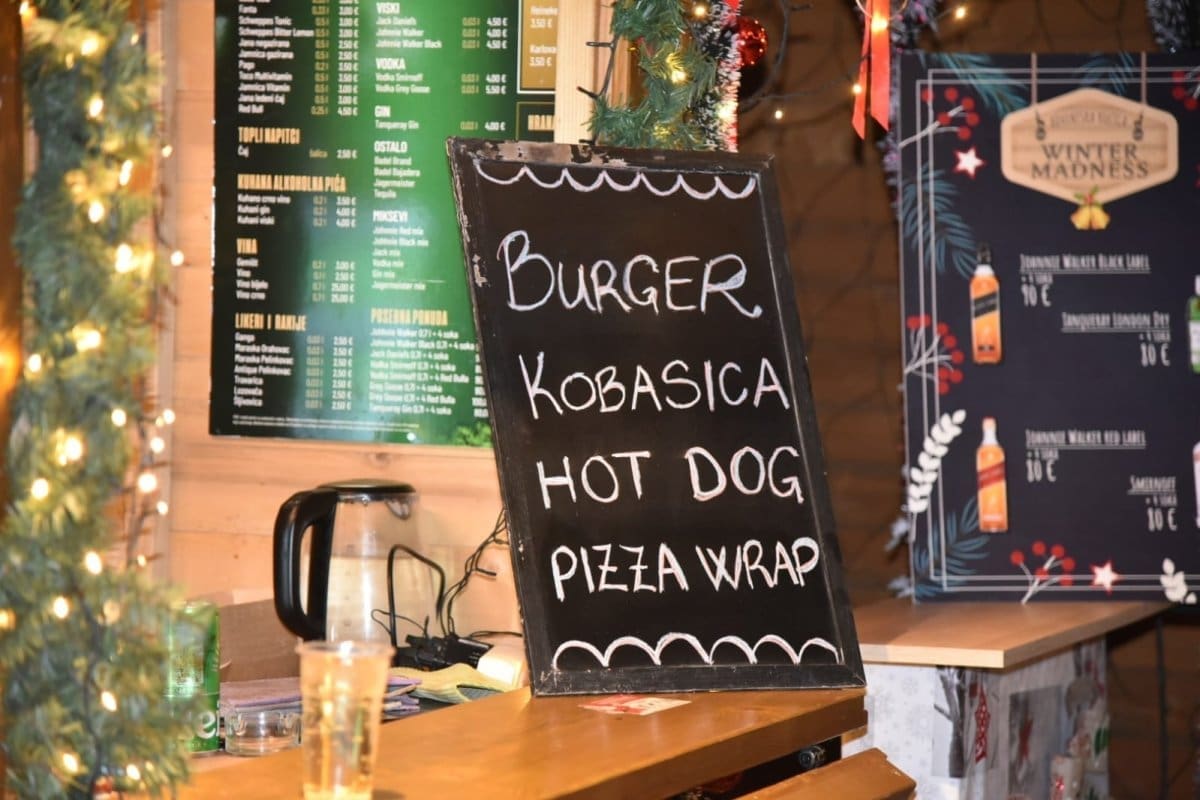 Schweppes Tonic
Schweppes Bitter Lemon
Jana negazirana
Jamnica gazirana
Pago
Toco Multivitamin
Jamnica Vitamin
Jana ledeni čaj
Red Bull 0.25 l 4,50 €
TOPLI NAPITCI
Čaj šalica 2,50 €
KUHANA ALKOHOLNA PIĆA
Kuhano crno vino 0,2 l 3,50 €
Kuhani gin 0,2 l 4,00 €
Kuhani viski 0,2 l 4,00 €
VINA
Gemišt
Vino
Vino bijelo
Vino crno
LIKERI I RAKIJE
Ganga 0,03 l 2,50 €
Maraska Orahovac 0,03 l 2,50 €
Maraska Pelinkovac 0,03 l 2,50 €
Antique Pelinkovac 0,03 l 2,50 €
Travarica 0,03 l 2,50 €
Lozovača 0,03 l 2,50 €
Šljivovica 0,03 l 2,50 €
VISKI
Jack Daniels 0,03 l 4,50 €
Johnnie Walker 0,03 l 4,00 €
Johnnie Walker Black 0,03 l 4,50 €
VODKA
Vodka Smirnoff 0,03 l 4,00 €
Vodka Grey Goose 0,03 l 5,50 €
GIN
Tanqueray Gin 0,03 l 4,00 €
OSTALO
Badel Brand
Badel Bajadera
Jagermeister
Tequila
MIKSEVI
Johnnie Red mix
Johnnie Black mix
Jack mix
Vodka mix
Gin mix
Jagermeister mix
POSEBNA PONUDA
Johnnie Walker 0,7 l + 4 soka
Johnnie Walker Black 0,7 l + 4 soka
Jack Daniels 0,7 l + 4 soka
Vodka Smirnoff 0,7 l + 4 soka
Vodka Smirnoff 0,7 l + 4 Red Bulla
Grey Goose 0,7 l + 4 soka
Grey Goose 0,7 l + 4 Red Bulla
Tanqueray Gin 0,7 l + 4 soka
3,50 €
3,50 €
HRANA
BURGER
KOBASICA
HOT DOG
PIZZA WRAP
WINTER
MADNESS
JOHNNIE WALKER BLACK LABEL
+ 4 SOKA
90 €
TANQUERAY LONDON DRY
+ 4 SOKA
80 €
JOHNNIE WALKER RED LABEL
+ 4 SOKA
80 €
SMIRNOFF
+ 4 SOKA
80 €